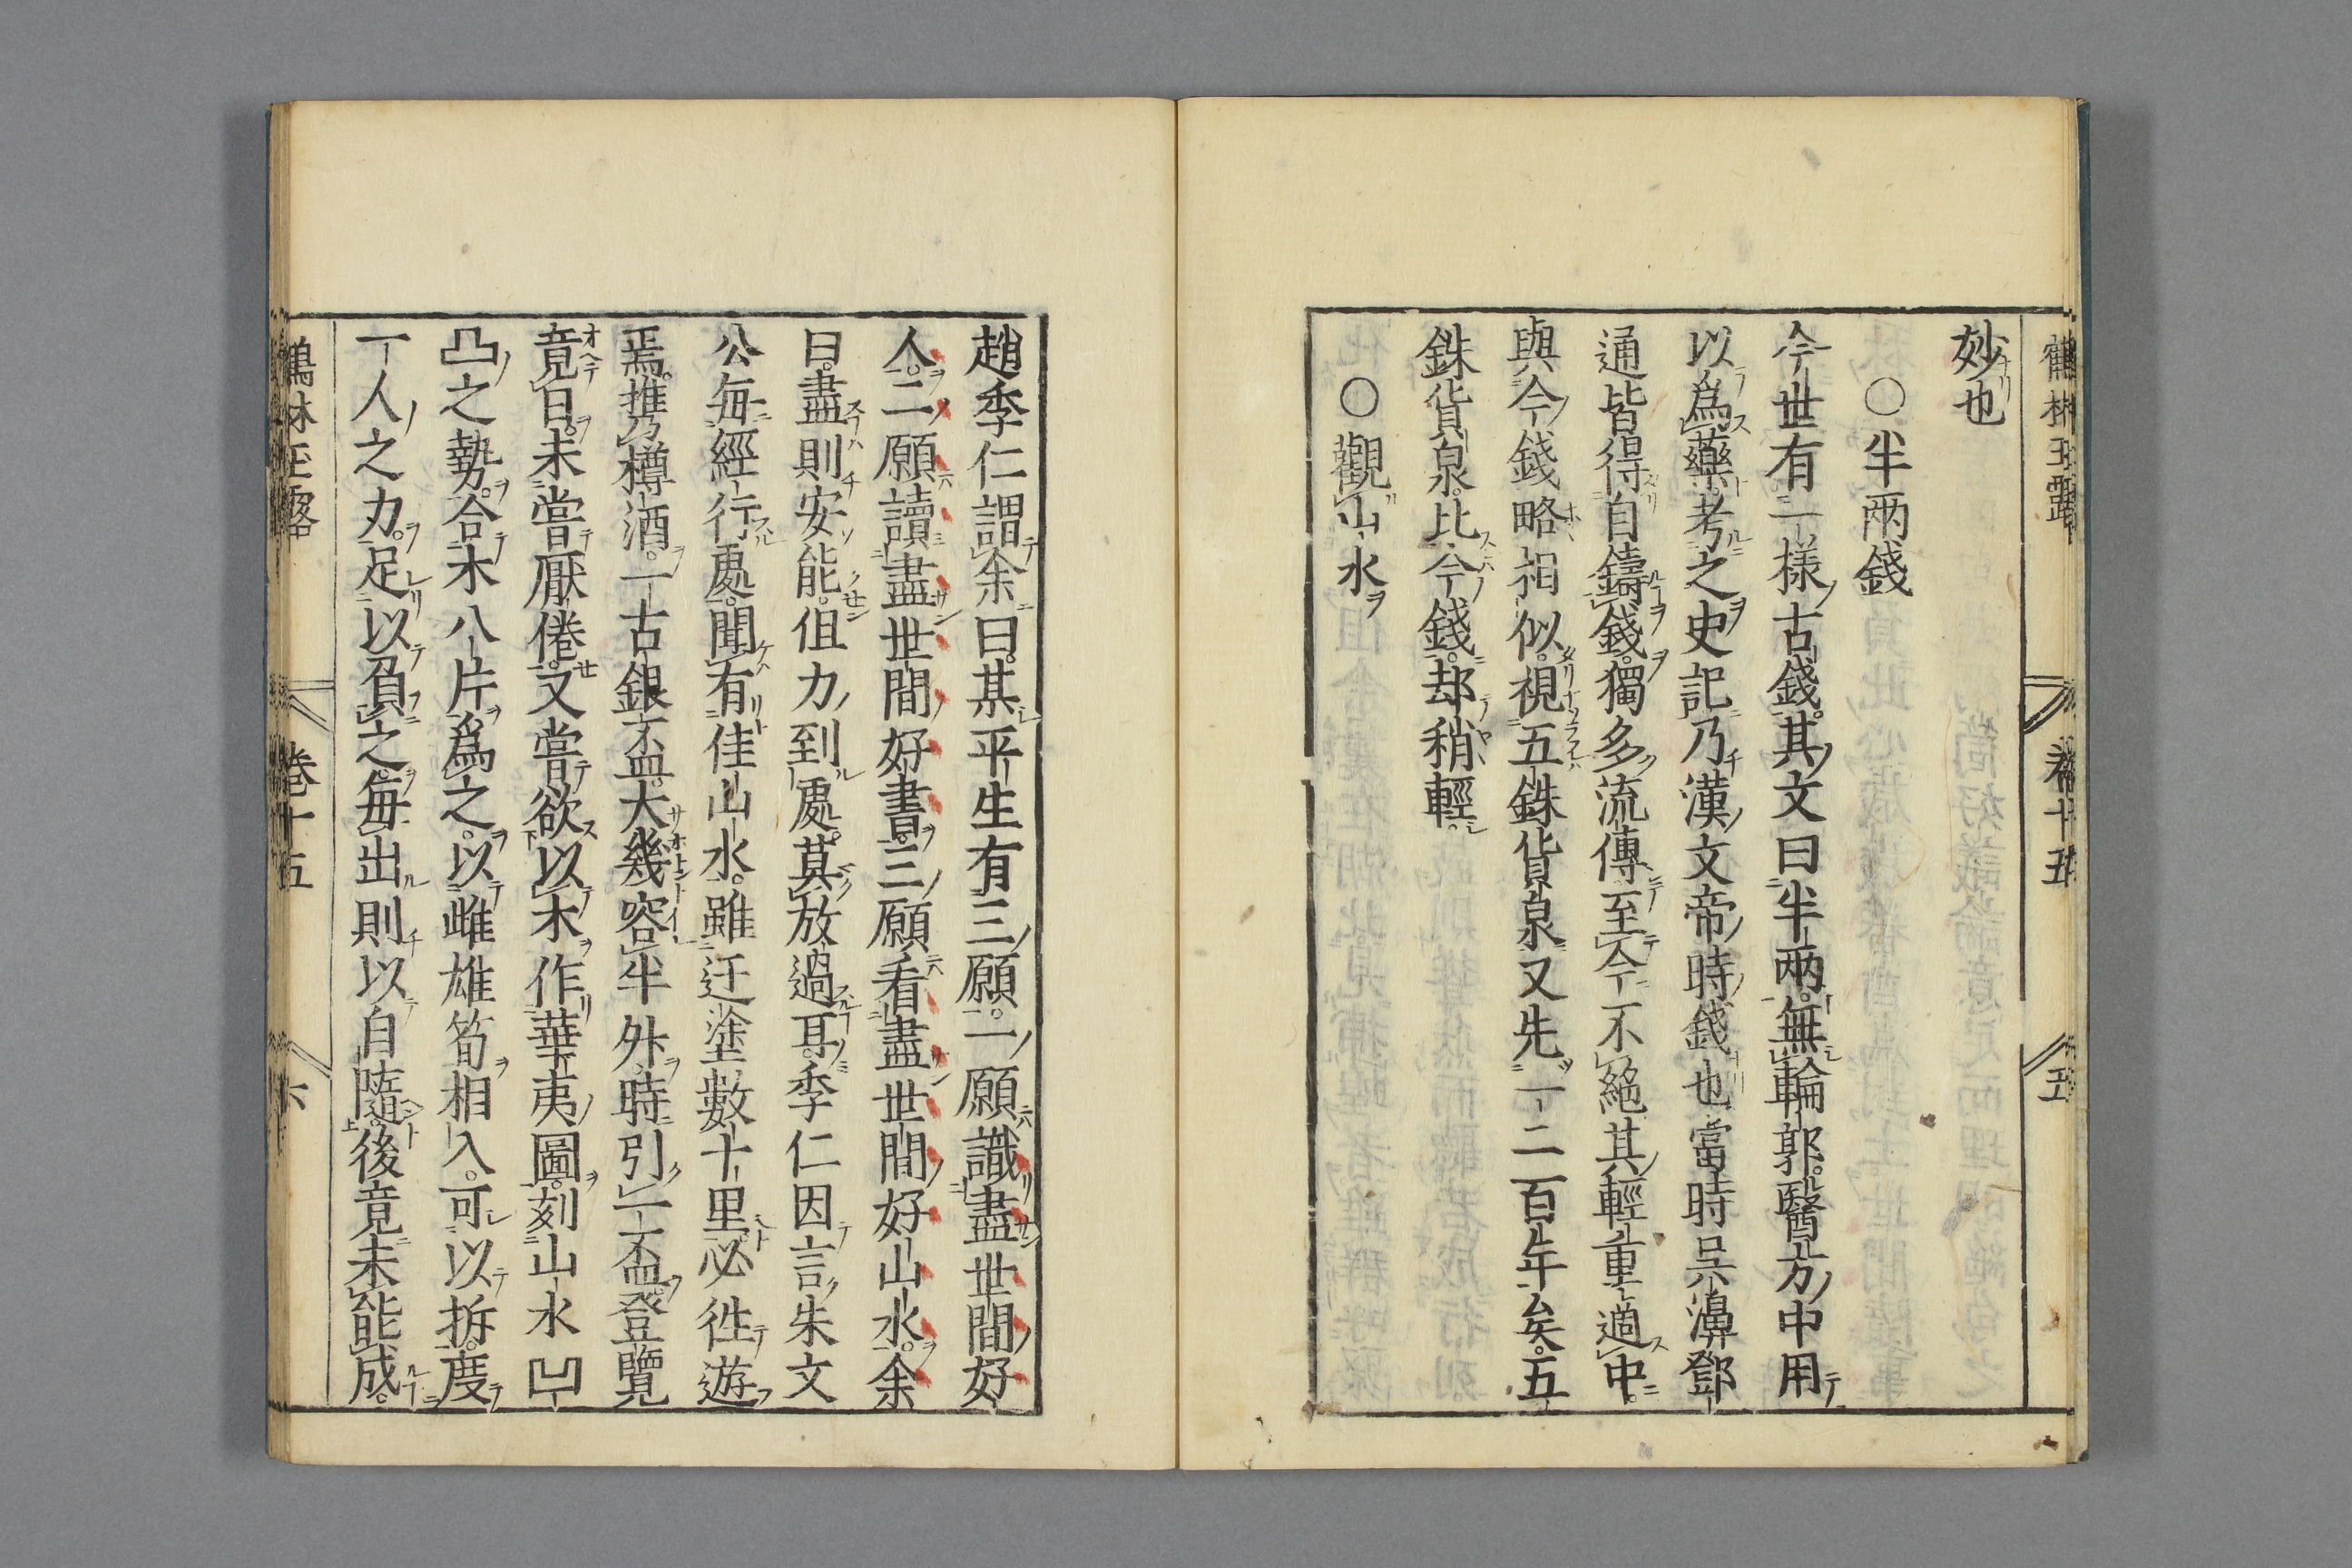 鶴林玉露　卷十五　五
妙也
○半兩錢
今世有一樣古錢。其文曰半兩。無輪郭。醫方中用
以爲藥。考之史記乃漢文帝時錢也當時吳濞鄧
通皆得自鑄錢。獨多流傳至今不絕其輕重適中。
與今錢略相似。視五銖貨泉又先一二百年矣。五
銖貨泉。比今錢。却稍輕。
○觀山水
趙季仁謂余曰。某平生有三願。一願識盡世間好
人。二願讀盡世間好書。三願看盡世間好山水。余
曰。盡則安能。但力到處。莫放過耳。季仁因言朱文
公每經行處。聞有佳山水。雖迂塗數十里。必徃遊
焉。携樽酒。一古銀盃。大幾容半外時引一盃。登覽
竟日。未嘗厭倦。又嘗欲以木作華夷圖。刻山水凹
凸之勢。合木八片爲之。以雌雄筍相入。可以拆。度
一人之力。足以負之。每出則以自隨。後竟未能成。
鶴林玉露　卷十五　六